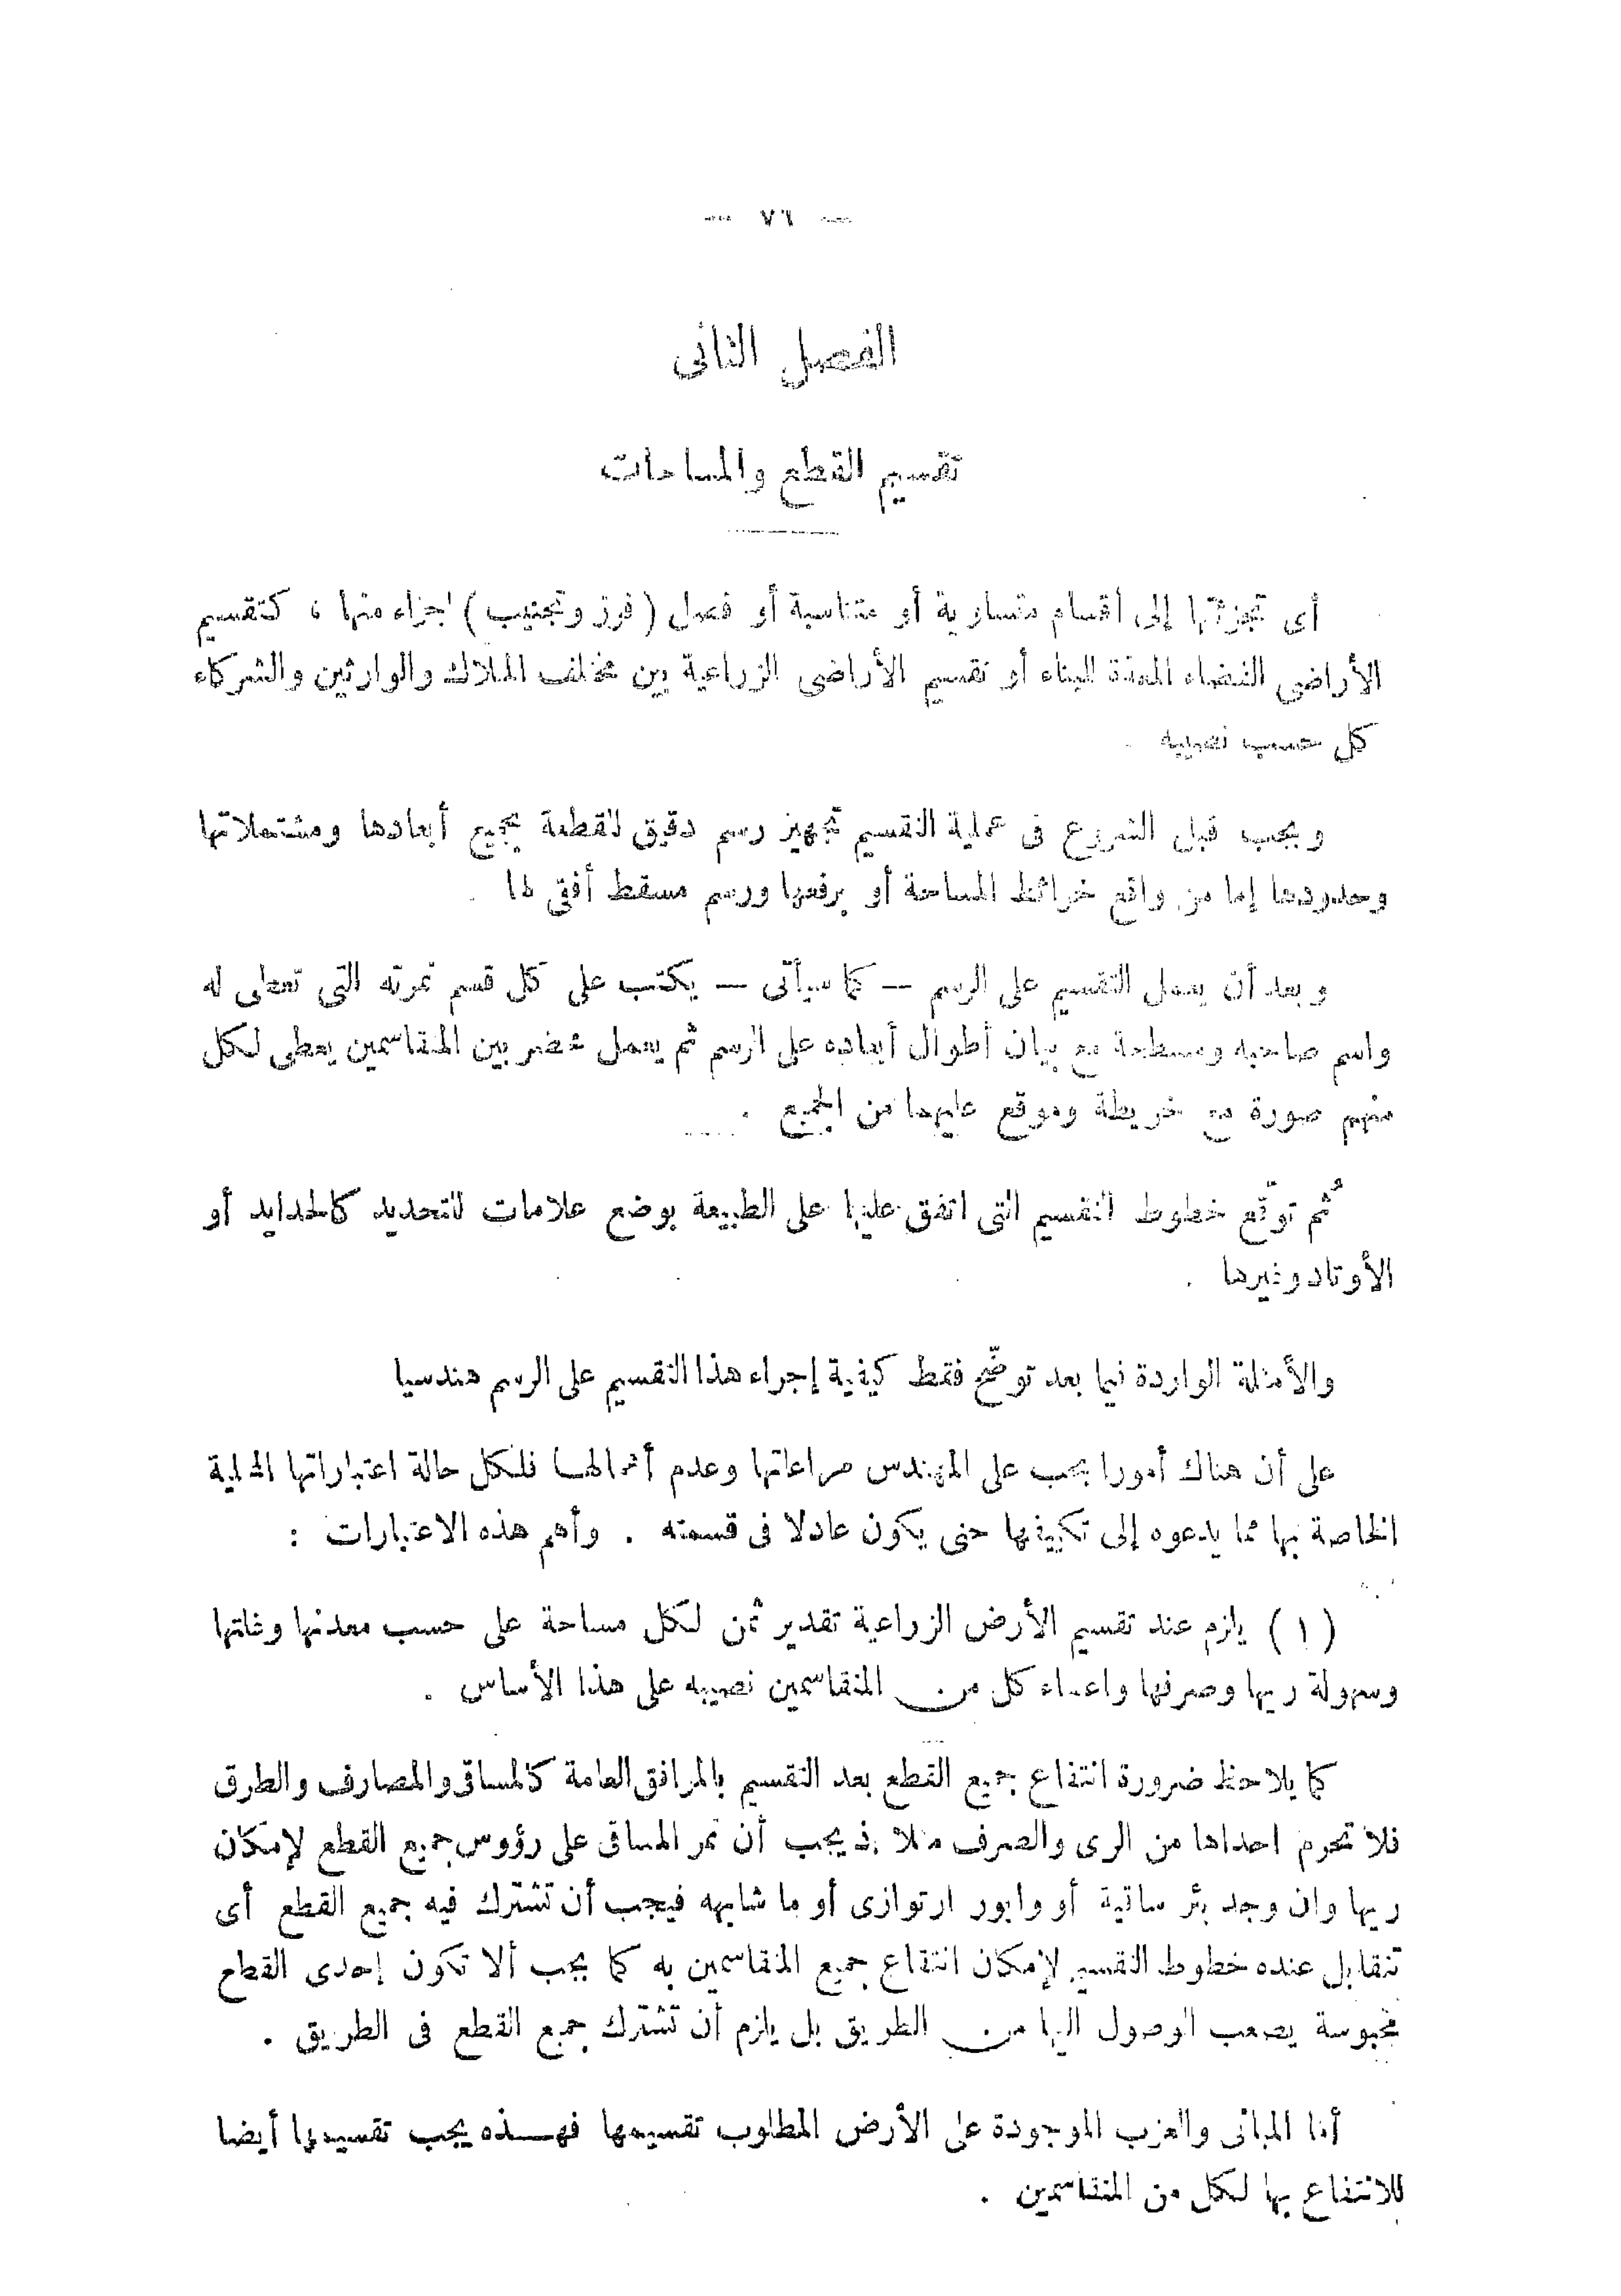 — ٧٦ —
الفصل الثانى
تقسيم القطع والمساحات
أى تجزئتها إلى أقسام متساوية أو متناسبة أو فصل ( فرز وتجنيب ) اجزاء منها ، كتقسيم
الأراضى الفضاء المعدّة للبناء أو تقسيم الأراضى الزراعية بين مختلف الملاك والوارثين والشركاء
كل حسب نصيبه .
ويجب قبل الشروع فى عملية التقسيم تجهيز رسم دقيق للقطعة بجميع أبعادها ومشتملاتها
وحدودها إما من واقع خرائط المساحة أو برفعها ورسم مسقط أفقى لها .
وبعد أن يعمل التقسيم على الرسم — كما سيأتى — يكتب على كل قسم نمرته التى تعطى له
واسم صاحبه ومسطحة مع بيان أطوال أبعاده على الرسم ثم يعمل محضر بين المتقاسمين يعطى لكل
منهم صورة مع خريطة وموقع عليهما من الجميع .
ثم توقّع خطوط التقسيم التى اتفق عليها على الطبيعة بوضع علامات للتحديد كالحدايد أو
الأوتاد وغيرها .
والأمثلة الواردة فيما بعد توضّح فقط كيفية إجراء هذا التقسيم على الرسم هندسيا
على أن هناك أمورا يجب على المهندس مراعاتها وعدم أهمالها فلكل حالة اعتباراتها المحلية
الخاصة بها مما يدعوه إلى تكييفها حتى يكون عادلا فى قسمته . وأهم هذه الاعتبارات :
( ١ ) يلزم عند تقسيم الأرض الزراعية تقدير ثمن لكل مساحة على حسب معدنها وغلتها
وسهولة ريها وصرفها واعطاء كل من المتقاسمين نصيبه على هذا الأساس .
كما يلاحظ ضرورة انتفاع جميع القطع بعد التقسيم بالمرافق العامة كالمساقى والمصارف والطرق
فلا تحرم احداها من الرى والصرف مثلا فيجب أن تمر المساقى على رؤوس جميع القطع لإمكان
ريها وان وجد بئر ساقية أو وابور ارتوازى أو ما شابهه فيجب أن تشترك فيه جميع القطع أى
تتقابل عنده خطوط التقسيم لإمكان انتفاع جميع المتقاسمين به كما يجب ألا تكون إحدى القطع
محبوسة يصعب الوصول اليها من الطريق بل يلزم أن تشترك جميع القطع فى الطريق .
أما المبانى والعزب الموجودة على الأرض المطلوب تقسيمها فهذه يجب تقسيمها أيضا
للانتفاع بها لكل من المتقاسمين .